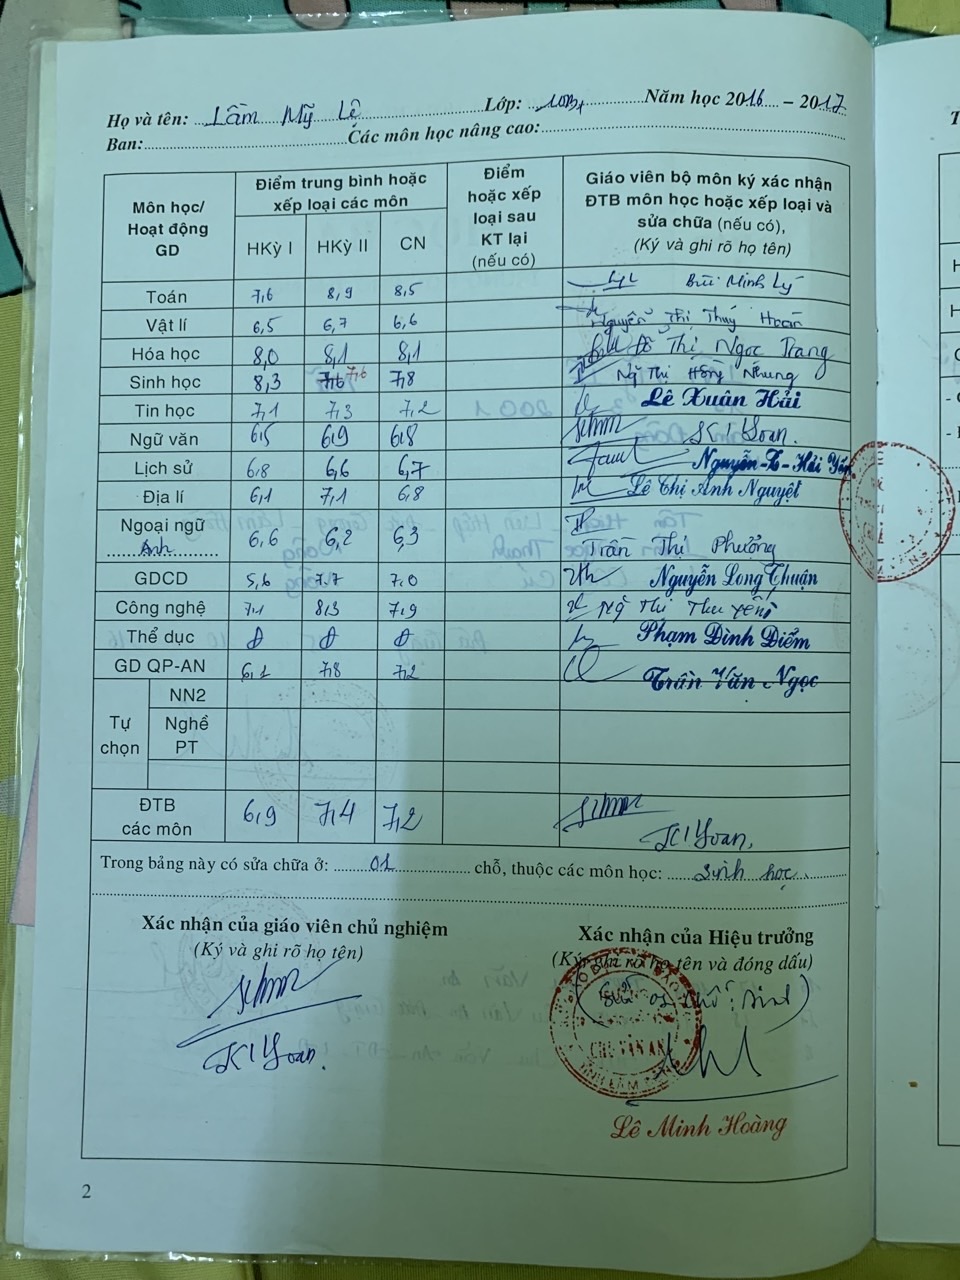 Họ và tên: Lầm Mỹ Lệ Lớp: 10B1 Năm học 2016 – 2017
Ban: Các môn học nâng cao:
Môn học/ Hoạt động GD
Điểm trung bình hoặc xếp loại các môn
HKỳ I HKỳ II CN
Điểm hoặc xếp loại sau KT lại (nếu có)
Giáo viên bộ môn ký xác nhận ĐTB môn học hoặc xếp loại và sửa chữa (nếu có), (Ký và ghi rõ họ tên)
Toán 7,6 8,9 8,5 Bùi Minh Lý
Vật lí 6,5 6,7 6,6 Nguyễn Thị Thúy Hoàn
Hóa học 8,0 8,1 8,1 Đỗ Thị Ngọc Trang
Sinh học 8,3 7,6 7,6 7,8 Ng Thị Hồng Nhung
Tin học 7,1 7,3 7,2 Lê Xuân Hải
Ngữ văn 6,5 6,9 6,8 K'I Yoan.
Lịch sử 6,8 6,6 6,7 Nguyễn-T-Hải Yến
Địa lí 6,1 7,1 6,8 Lê Thị Ánh Nguyệt
Ngoại ngữ
Anh 6,6 6,2 6,3 Trần Thị Phưởng
GDCD 5,6 7,7 7,0 Nguyễn Long Thuận
Công nghệ 7,1 8,3 7,9 Ng Thị Thu Yến
Thể dục Đ Đ Đ Phạm Đình Điểm
GD QP-AN 6,1 7,8 7,2 Trần Văn Ngọc
Tự chọn
NN2
Nghề PT
ĐTB các môn 6,9 7,4 7,2 K'I Yoan.
Trong bảng này có sửa chữa ở: 01 chỗ, thuộc các môn học: sinh học
Xác nhận của giáo viên chủ nghiệm
(Ký và ghi rõ họ tên)
K'I Yoan.
Xác nhận của Hiệu trưởng
(Ký, ghi rõ họ tên và đóng dấu)
CHU VĂN AN
Lê Minh Hoàng
2